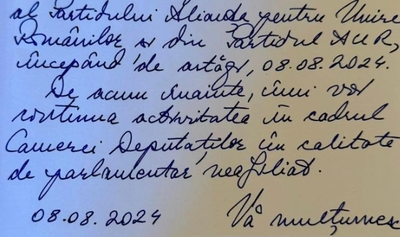 al Partidului Alianța pentru Unire
Românilor și din Partidul AUR,
începând de astăzi, 08.08.2024.
De acum înainte, îmi voi
continua activitatea în cadrul
Camerei Deputaților în calitate
de parlamentar neafiliat.
08.08.2024 Vă mulțumesc